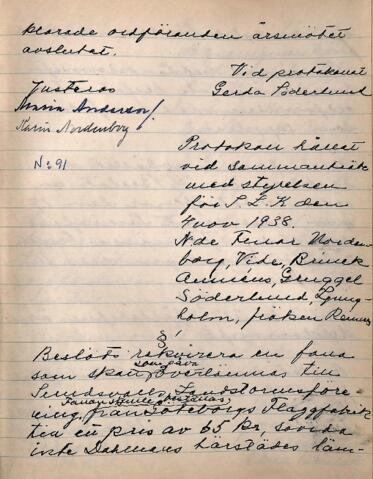 klarade ordföranden årsmötet
avslutat.
Vid protokollet
Gerda Söderlund
Justeras
Maria Anderson.
Karin Nordenborg
N:o 91
Protokoll hållet
vid sammanträde
med styrelsen
för S.L.K den
4 nov 1938.
N.de Fruar Norden-
borg, Vide, Brinck
Gruggel
Söderlund, Ljung-
holm, fröken
§ 1
Beslöts rekvirera en fana
som gåva
som skall överlämnas till
Sundsvalls Landstormsföre-
ning, från Göteborgs Flaggfabrik
till ett pris av 65 kr, såvida
inte Dahmans härstädes läm-